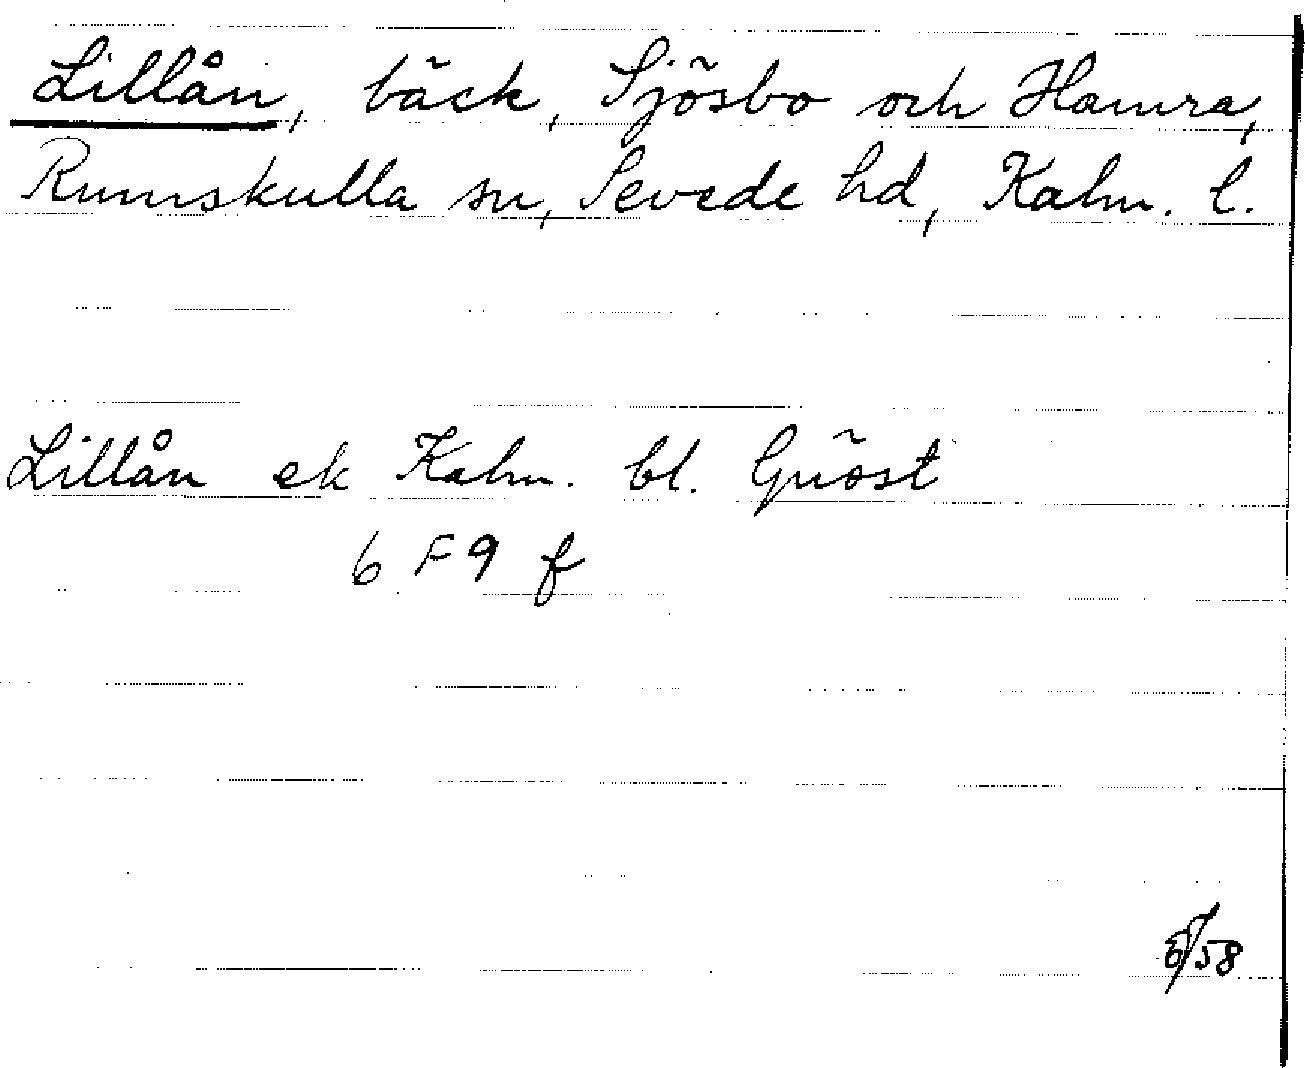 Lillån, bäck, Sjösbo och Hamra,
Rumskulla sn, Sevede hd, Kalm. l.
Lillån ek Kalm. bl. Gnöst
6 F 9 f
/58